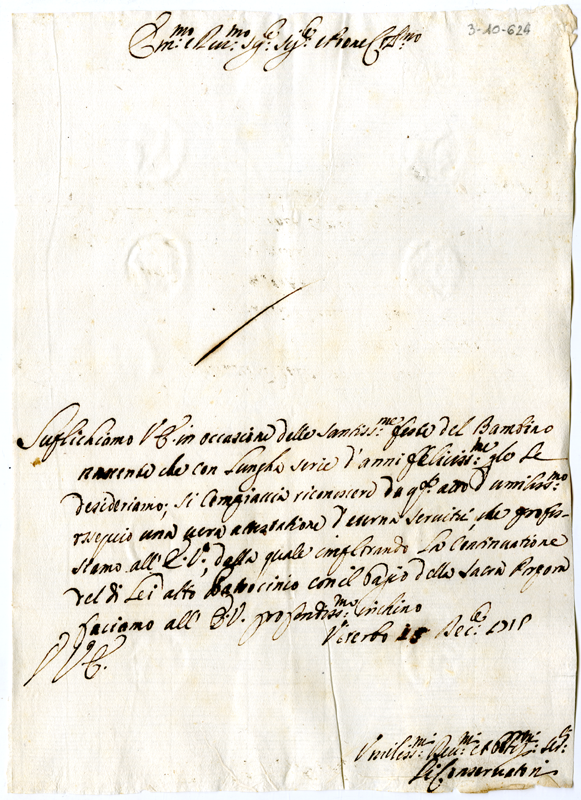 3-10-624
Em.mo e Reu.mo Sig.e Sig.e e Prone Col.mo
Suplichiamo V.E. in occasione delle Santiss.me feste del Bambino
nascente che con lungha serie d'anni feliciss.me glo le
desideriamo; si compiaccia riconoscere da q.to atto d'umiliss.mo
rsequio una uera attestatione d'eterna seruitù, che profes-
siamo all'E.V.a, dalla quale implorando la continuatione
del di Lei alto Patrocinio con il bagio della Sacra Porpora
facciamo all'E.V. profondiss.mo inchino
Viterbo 15 Dec.e 1715
V.E.
Vmiliss.mi Deu.mi et Obblig.mi Se.ri
Li Conseruatori